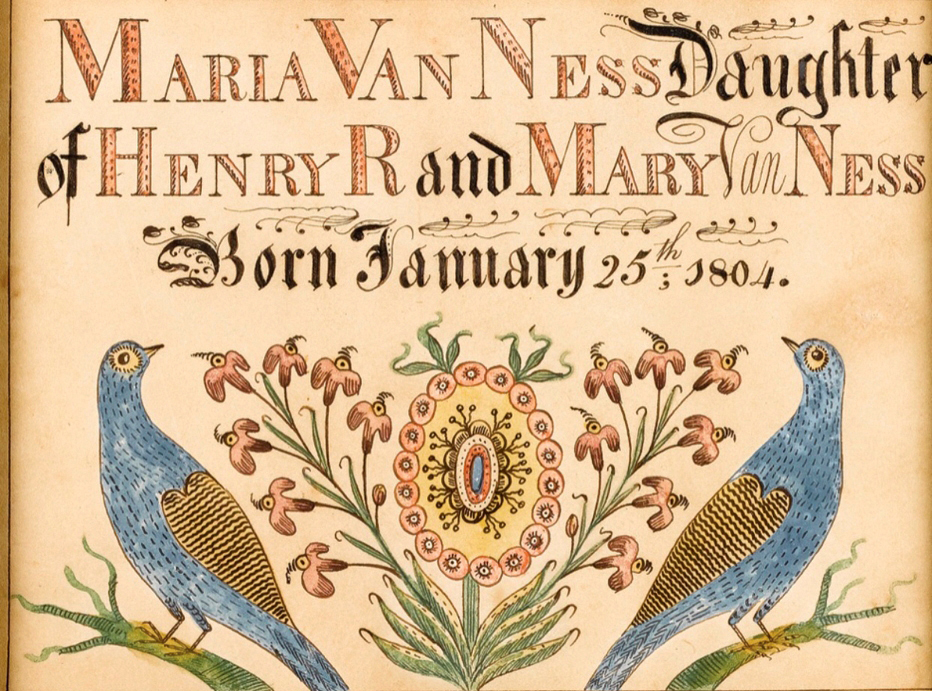 Maria Van Ness Daughter
of Henry R and Mary Van Ness
Born January 25th; 1804.